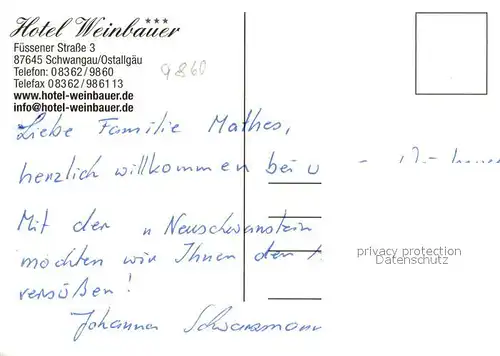 Hotel Weinbauer***
Füssener Straße 3
87645 Schwangau/Ostallgäu
Telefon: 08362/9860
9860
Telefax 08362/986113
www.hotel-weinbauer.de
info@hotel-weinbauer.de
Liebe Familie Mathes,
herzlich willkommen bei
Mit der "Neuschwanstein
möchten wir Ihnen den
versüßen!
Johanna Schwarzmann
privacy protection
Datenschutz